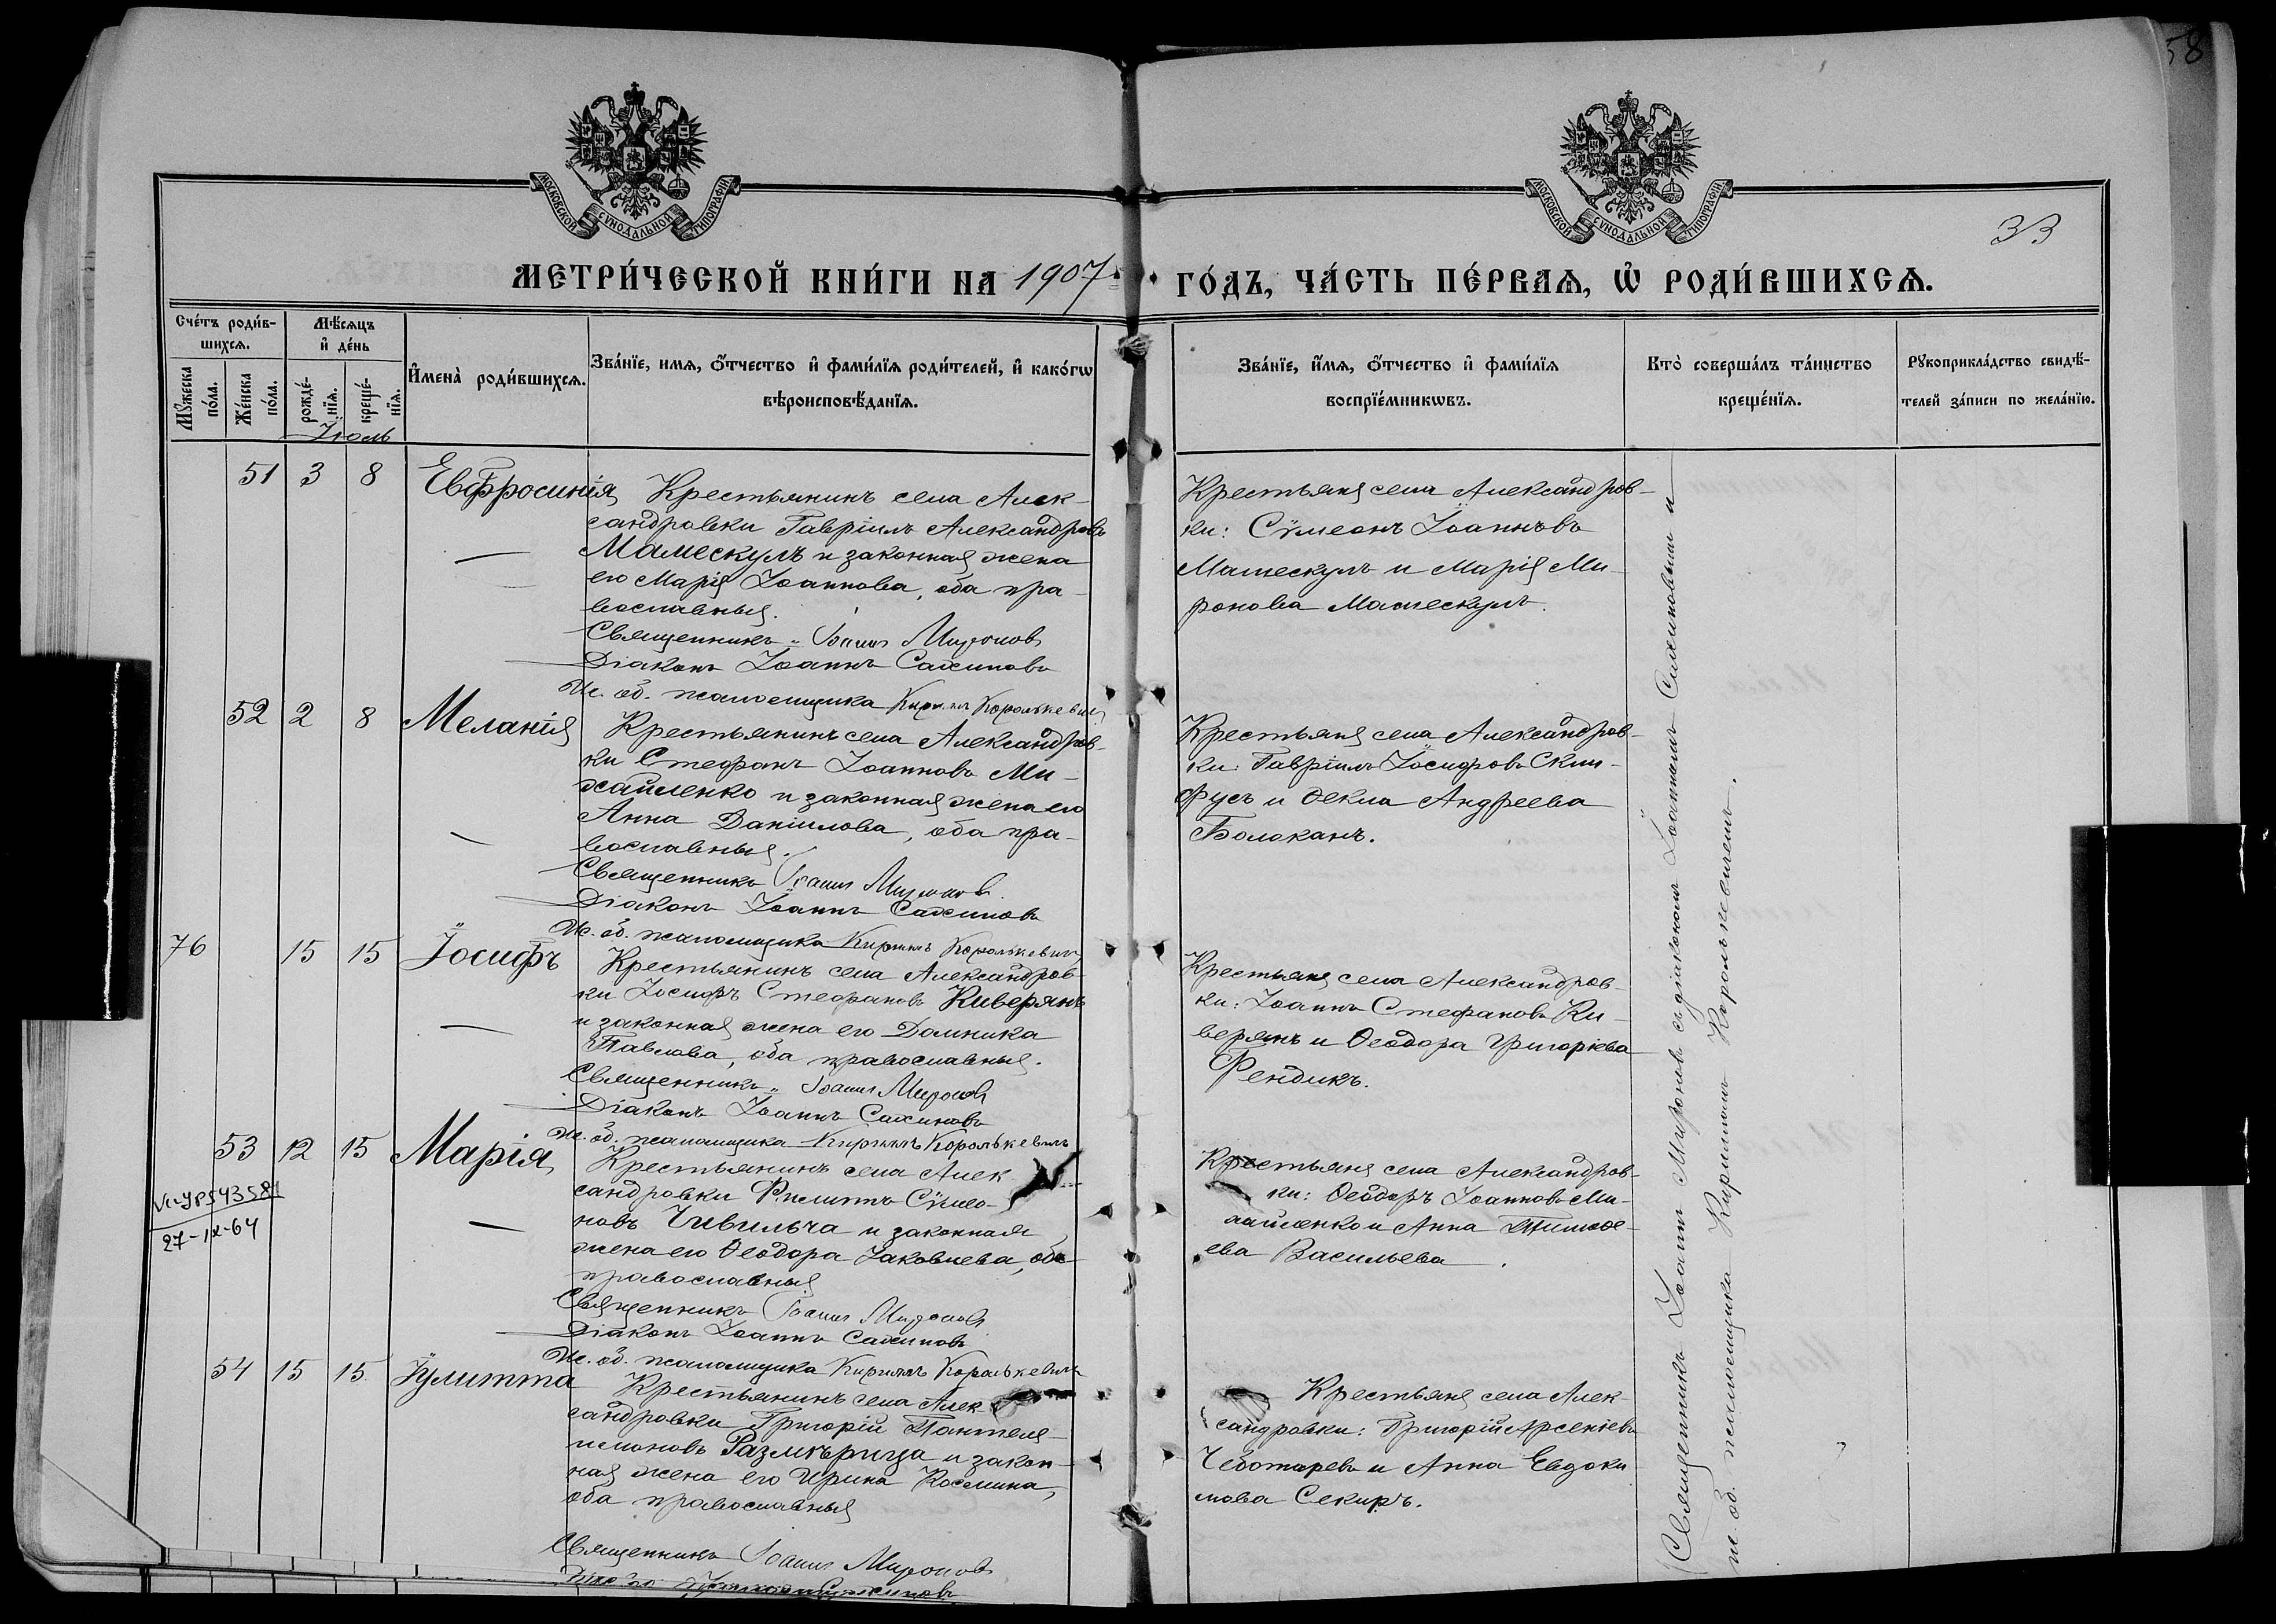 58
МОСКОВСКОЙ СѴНОДАЛЬНОЙ ТИПОГРАФІИ
МОСКОВСКОЙ СѴНОДАЛЬНОЙ ТИПОГРАФІИ
33
МЕТРИ́ЧЕСКОЙ КНИ́ГИ НА 1907
ГО́ДЪ, ЧА́СТЬ ПЕ́РВАѦ, Ѡ҆ РОДИ́ВШИХСѦ.
Сче́тъ роди́в-
шихсѧ.
Мꙋ́жеска по́ла.
Же́нска по́ла.
Мѣ́сѧцъ
и҆ де́нь
рожде́-
нїѧ.
креще́-
нїѧ.
И҆мена̀ роди́вшихсѧ.
Зва́нїе, имѧ, ѻ҆́тчество и҆ фами́лїѧ роди́телей, и҆ како́гѡ
вѣроисповѣ́данїѧ.
Зва́нїе, и҆́мѧ, ѻ҆́тчество и҆ фами́лїѧ
воспрїе́мникѡвъ.
Кто̀ соверша́лъ та́инство
креще́нїѧ.
Рꙋкоприкла́дство свидѣ́-
телей за́писи по жела́нїю.
Іюль
51 3 8 Евфросинія
Крестьянинъ села Алек-
сандровки Гавріилъ Александровъ
Мамескулъ и законная жена
его Марія Іоаннова, оба пра-
вославныя.
Священникъ Іоаннъ Мироновъ
Діаконъ Іоаннъ
Ис. об. псаломщика Кириллъ Королькевичъ
Крестьяне села Александров-
ки: Сѵмеонъ Іоанновъ
Мамескулъ и Марія Ми-
ронова Мамескулъ.
52 2 8 Меланія
Крестьянинъ села Александров-
ки Стефанъ Іоанновъ Ми-
хайленко и законная жена его
Анна Даніилова, оба пра-
вославныя.
Священникъ Іоаннъ Мироновъ
Діаконъ Іоаннъ
Ис. об. псаломщика Кириллъ Королькевичъ
Крестьяне села Александров-
ки: Гавріилъ Іосифовъ Скли-
фусъ и Ѳекла Андреева
Болоканъ.
76 15 15 Іосифъ
Крестьянинъ села Александров-
ки Іосифъ Стефановъ Киверянъ
и законная жена его Домника
Павлова, оба православныя.
Священникъ Іоаннъ Мироновъ
Діаконъ Іоаннъ
Ис. об. псаломщика Кириллъ Королькевичъ
Крестьяне села Александров-
ки: Іоаннъ Стефановъ Ки-
верянъ и Ѳеодора Григоріева
Фендикъ.
53 12 15 Марія
VI-УР543581
27-IX-64
Крестьянинъ села Алек
сандровки Филиппъ Сѵмео-
новъ Чивильча и законная
жена его Ѳеодора Іаковлева, оба
православныя
Священникъ Іоаннъ Мироновъ
Діаконъ Іоаннъ
Ис. об. псаломщика Кириллъ Королькевичъ
Крестьяне села Александров-
ки: Ѳеодоръ Іоанновъ Ми-
хайленко и Анна Тимоѳе-
ева Васильева.
54 15 15 Іулитта
Крестьянинъ села Алек-
сандровки Григорій Пантеле-
имоновъ Размѣрица и закон-
ная жена его Ирина Космина,
оба православныя
Священникъ Іоаннъ Мироновъ
Діаконъ Іоаннъ
Крестьяне села Алек-
сандровки: Григорій Арсеніевъ
Чеботаревъ и Анна Евдоки
мова Секиръ.
Священникъ Іоаннъ Мироновъ съ діакономъ Іоанномъ и
ис. об. псаломщика Кирилломъ Королькевичемъ.